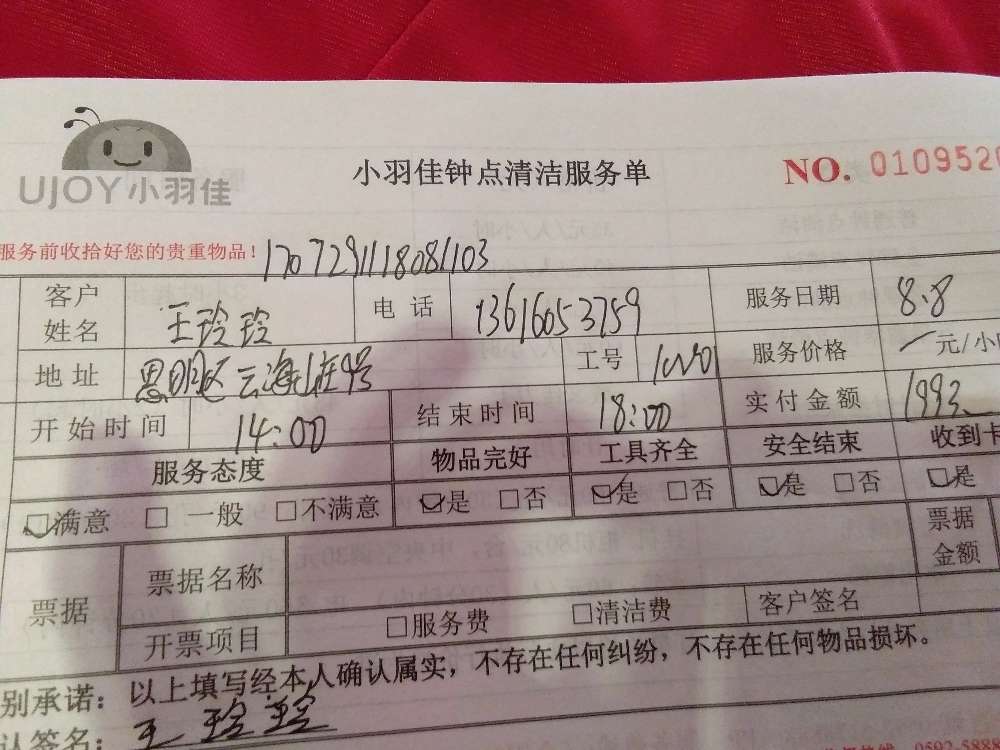 UJOY小羽佳
小羽佳钟点清洁服务单
NO. 0109520
服务前收拾好您的贵重物品！
1707291118081103
客户姓名 王玲玲 电话 13616053759 服务日期 8.8
地址 思明区云海山庄9号 工号 服务价格 元/小
开始时间 14:00 结束时间 18:00 实付金额 1993
服务态度 物品完好 工具齐全 安全结束 收到卡
☑满意 □一般 □不满意 ☑是 □否 ☑是 □否 ☑是 □否 ☑是
票据 票据名称 票据金额
开票项目 □服务费 □清洁费 客户签名
别承诺：以上填写经本人确认属实，不存在任何纠纷，不存在任何物品损坏。
认签名：王玲玲